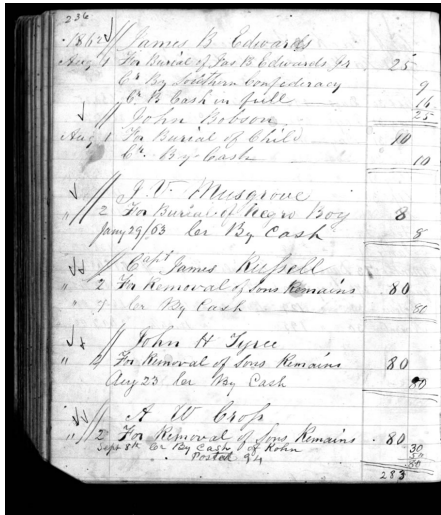 236
1862 // James B. Edwards
Aug 1 For Burial of Jas B Edwards Jr 25
Cr By Southern Confederacy 9
Cr B Cash in full 16
25
John Bobson
Aug 1 For Burial of Child 10
Cr. By Cash 10
// J. V. Musgrove
" 2 For Burial of Negro Boy 8
Jany 29/63 Cr By Cash 8
// Capt James Russell
" 2 For Removal of Sons Remains 80
" " Cr By Cash 80
// John H Tyree
" 2 For Removal of Sons Remains 80
Aug 23 Cr By Cash 80
// A W Cross
" 2 For Removal of Sons Remains 80
Sept 8th Cr By Cash of Kohn 30
Posted 94 50
80
283